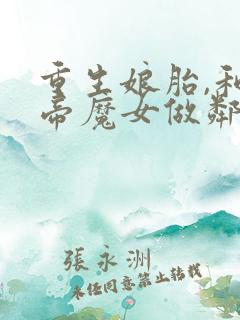 重生娘胎,和
帝魔女做鄰
張永洲
未经同意禁止转载